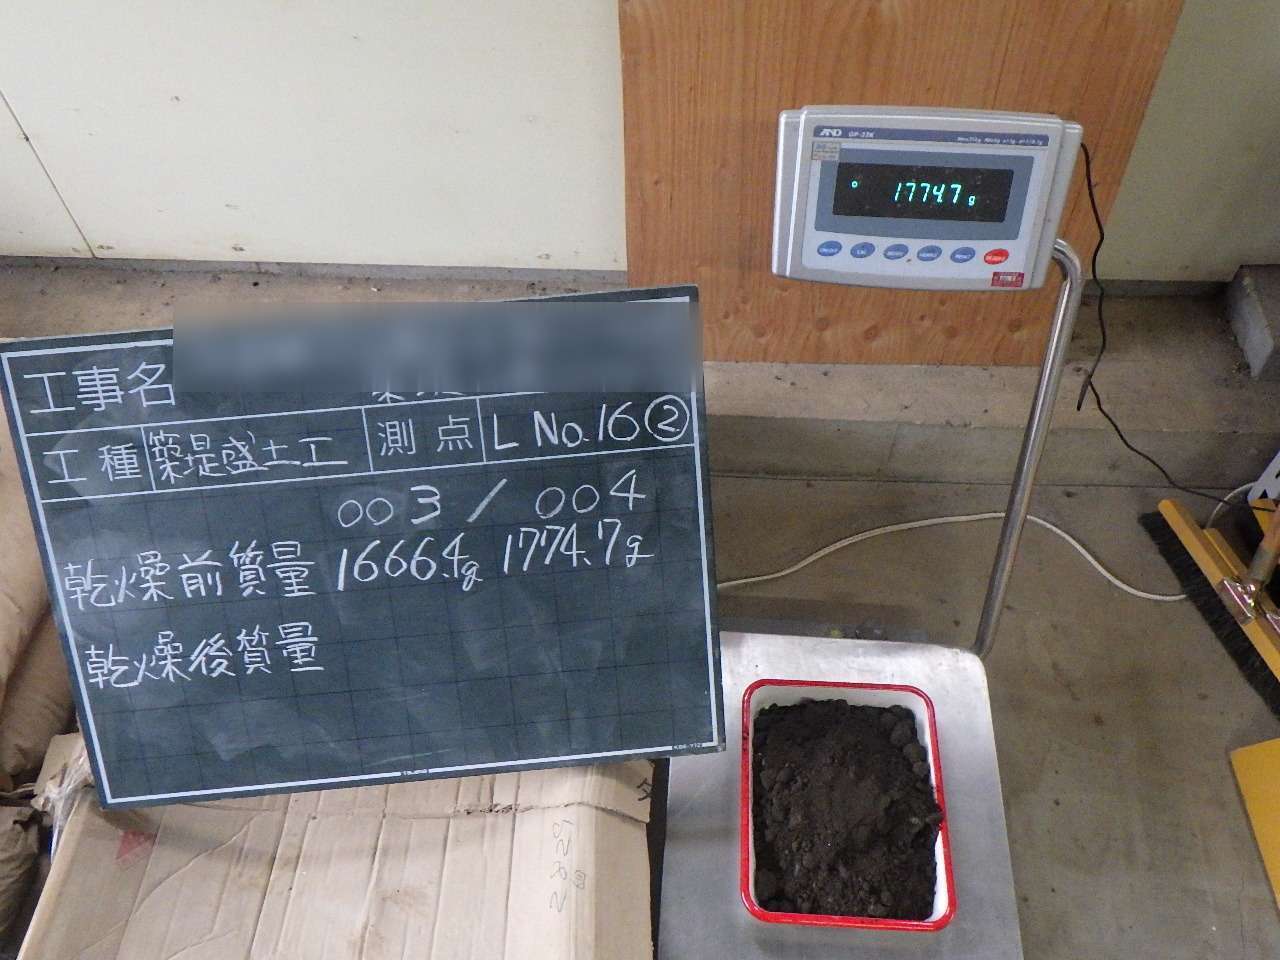 AND GP-32K
1774.7 g
工事名
工種 築堤盛土工 測点 L No.16 ②
003 / 004
乾燥前質量 1666.4g 1774.7g
乾燥後質量